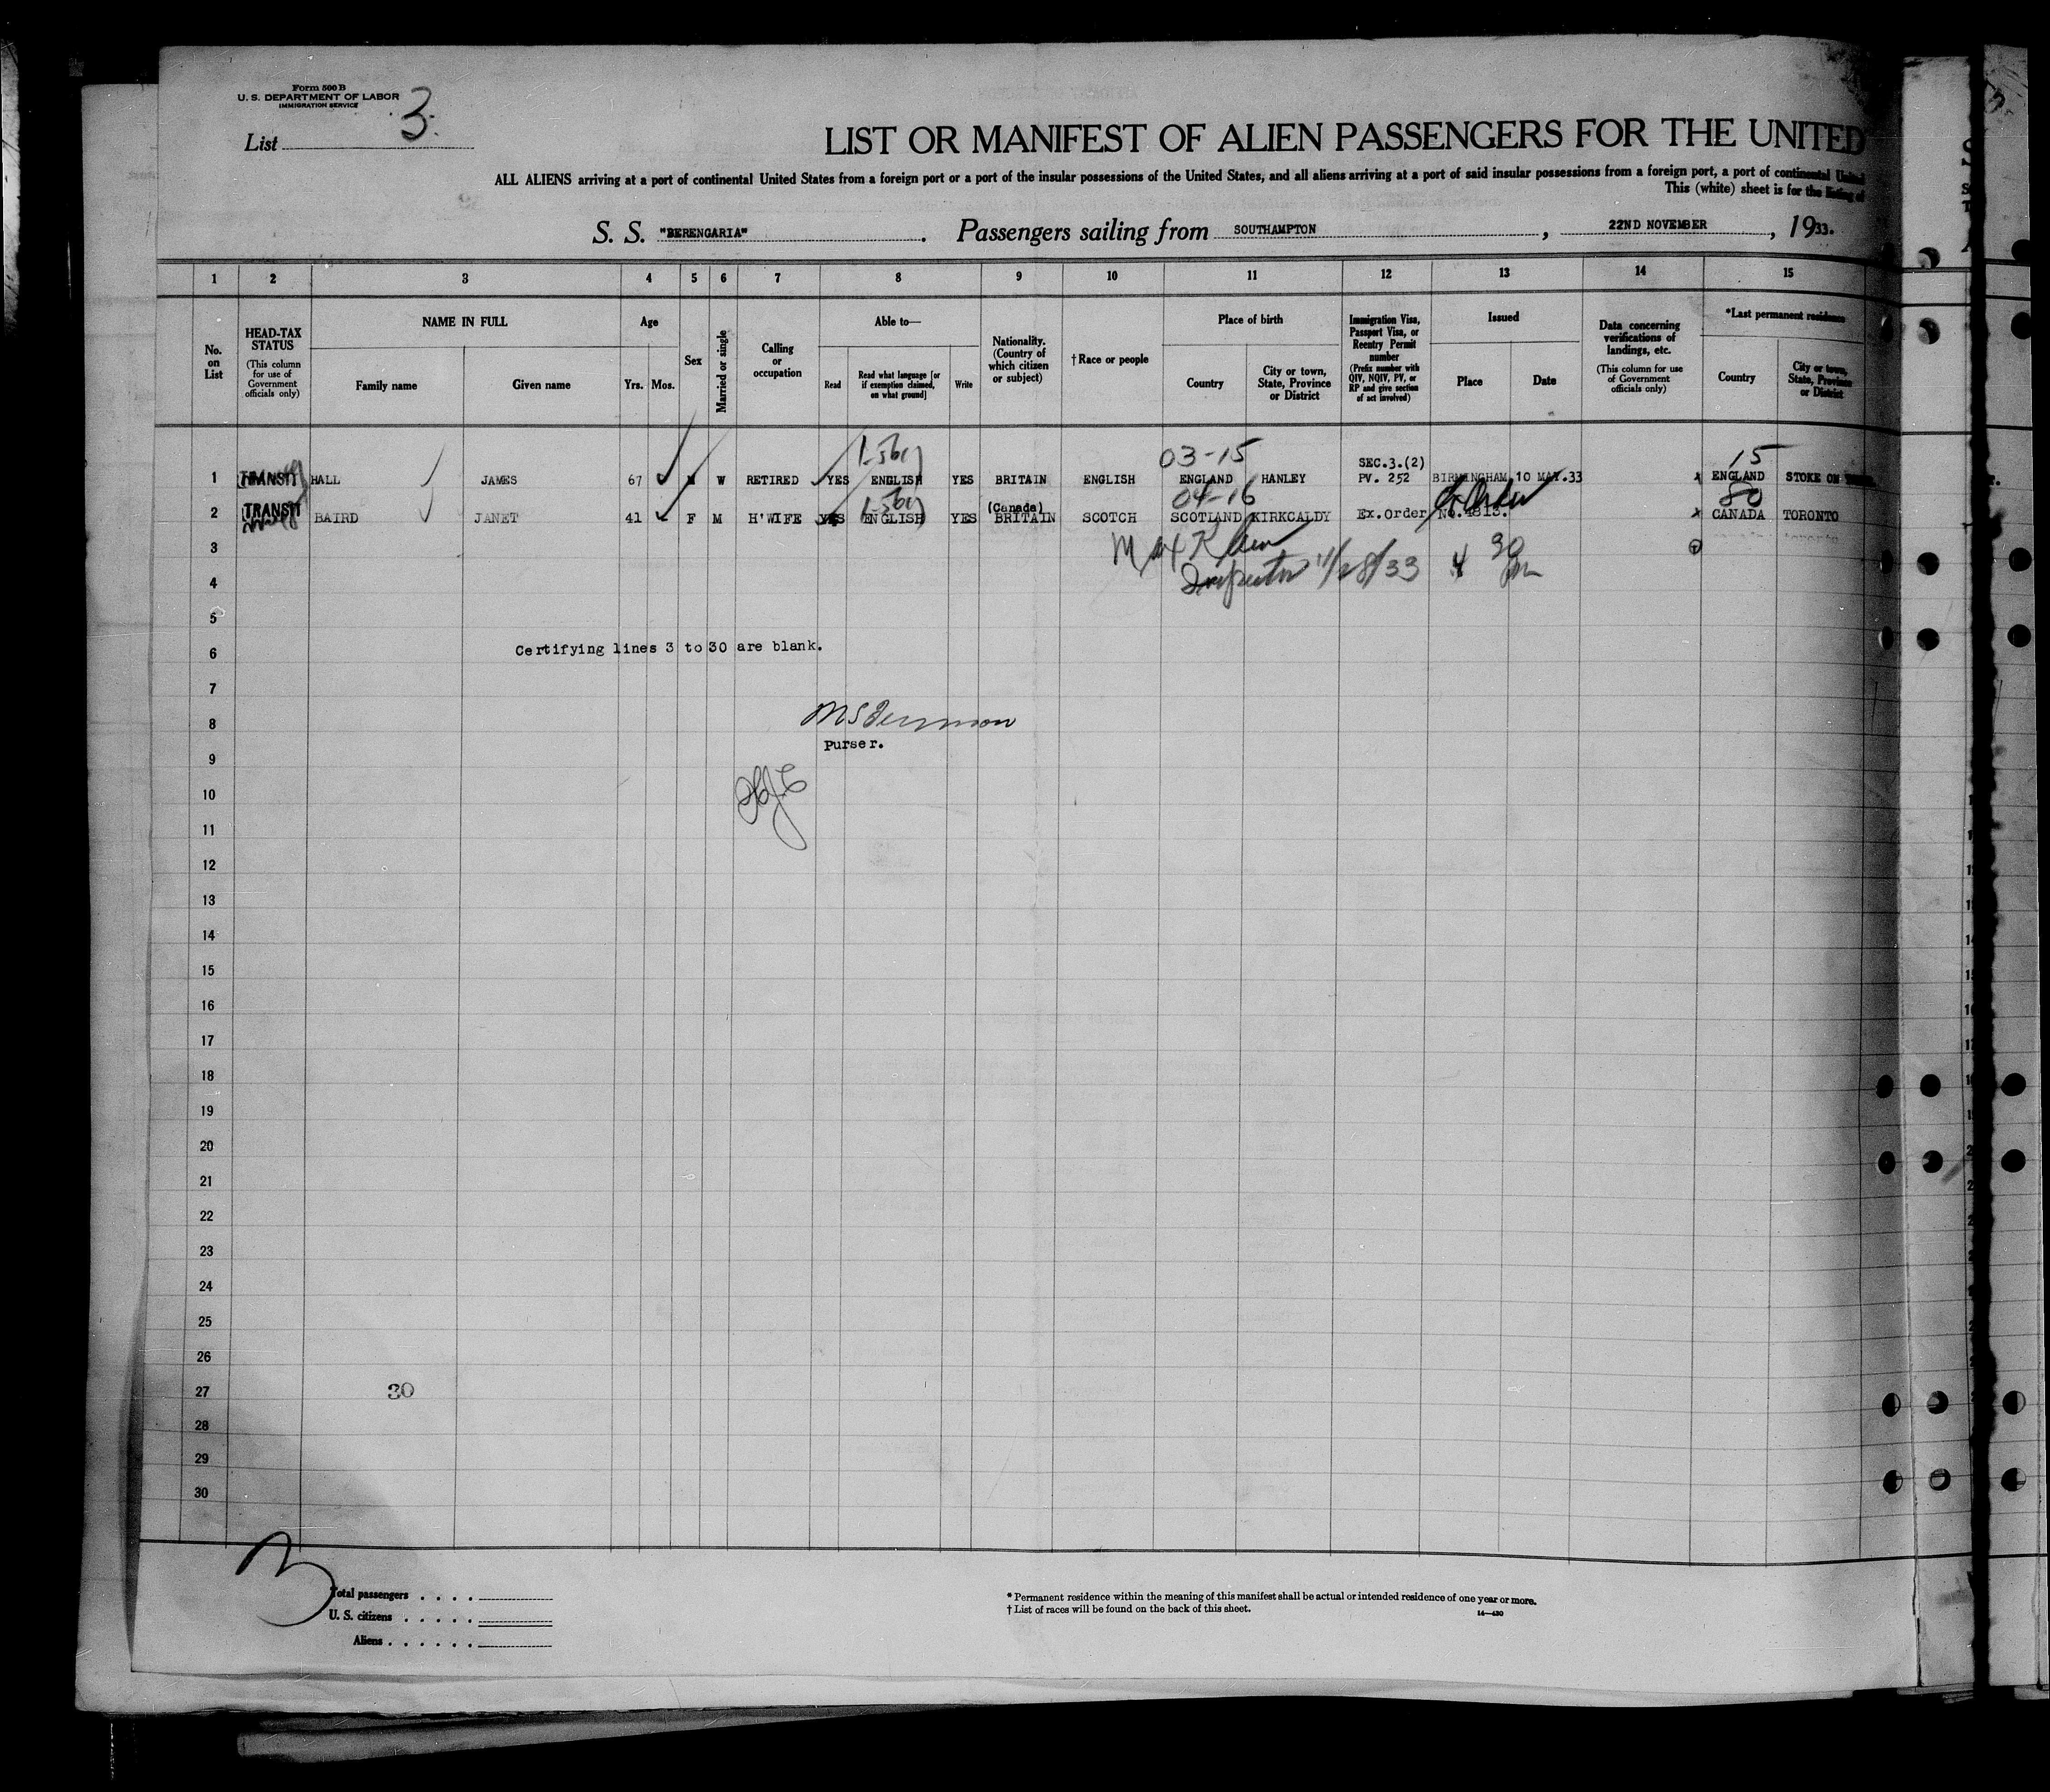 Form 500 B
U. S. DEPARTMENT OF LABOR
IMMIGRATION SERVICE
List 3
LIST OR MANIFEST OF ALIEN PASSENGERS FOR THE UNITED
ALL ALIENS arriving at a port of continental United States from a foreign port or a port of the insular possessions of the United States, and all aliens arriving at a port of said insular possessions from a foreign port, a port of continental United
This (white) sheet is for the listing of
S. S. "BERENGARIA". Passengers sailing from SOUTHAMPTON, 22ND NOVEMBER, 1933.
1 2 3 4 5 6 7 8 9 10 11 12 13 14 15
No. on List
HEAD-TAX STATUS
(This column for use of Government officials only)
NAME IN FULL
Family name
Given name
Age
Yrs. Mos.
Sex
Married or single
Calling or occupation
Able to—
Read
Read what language [or if exemption claimed, on what ground]
Write
Nationality. (Country of which citizen or subject)
† Race or people
Place of birth
Country
City or town, State, Province or District
Immigration Visa, Passport Visa, or Reentry Permit number
(Prefix number with QIV, NQIV, PV, or RP and give section of act involved)
Issued
Place
Date
Data concerning verifications of landings, etc.
(This column for use of Government officials only)
*Last permanent residence
Country
City or town, State, Province or District
03-15 15
SEC.3.(2)
1 TRANSIT HALL JAMES 67 M W RETIRED YES ENGLISH YES BRITAIN ENGLISH ENGLAND HANLEY PV. 252 BIRMINGHAM 10 MAY.33 x ENGLAND STOKE ON
04-16 80
(Canada)
2 TRANSIT BAIRD JANET 41 F M H'WIFE YES ENGLISH YES BRITAIN SCOTCH SCOTLAND KIRKCALDY Ex.Order No.4813. x CANADA TORONTO
3
Inspector 11/28/33 4 30 pm
4
5
6 Certifying lines 3 to 30 are blank.
7
8
Purser.
9
10
11
12
13
14
15
16
17
18
19
20
21
22
23
24
25
26
27 30
28
29
30
3
Total passengers
U. S. citizens
Aliens
* Permanent residence within the meaning of this manifest shall be actual or intended residence of one year or more.
† List of races will be found on the back of this sheet.
14—430